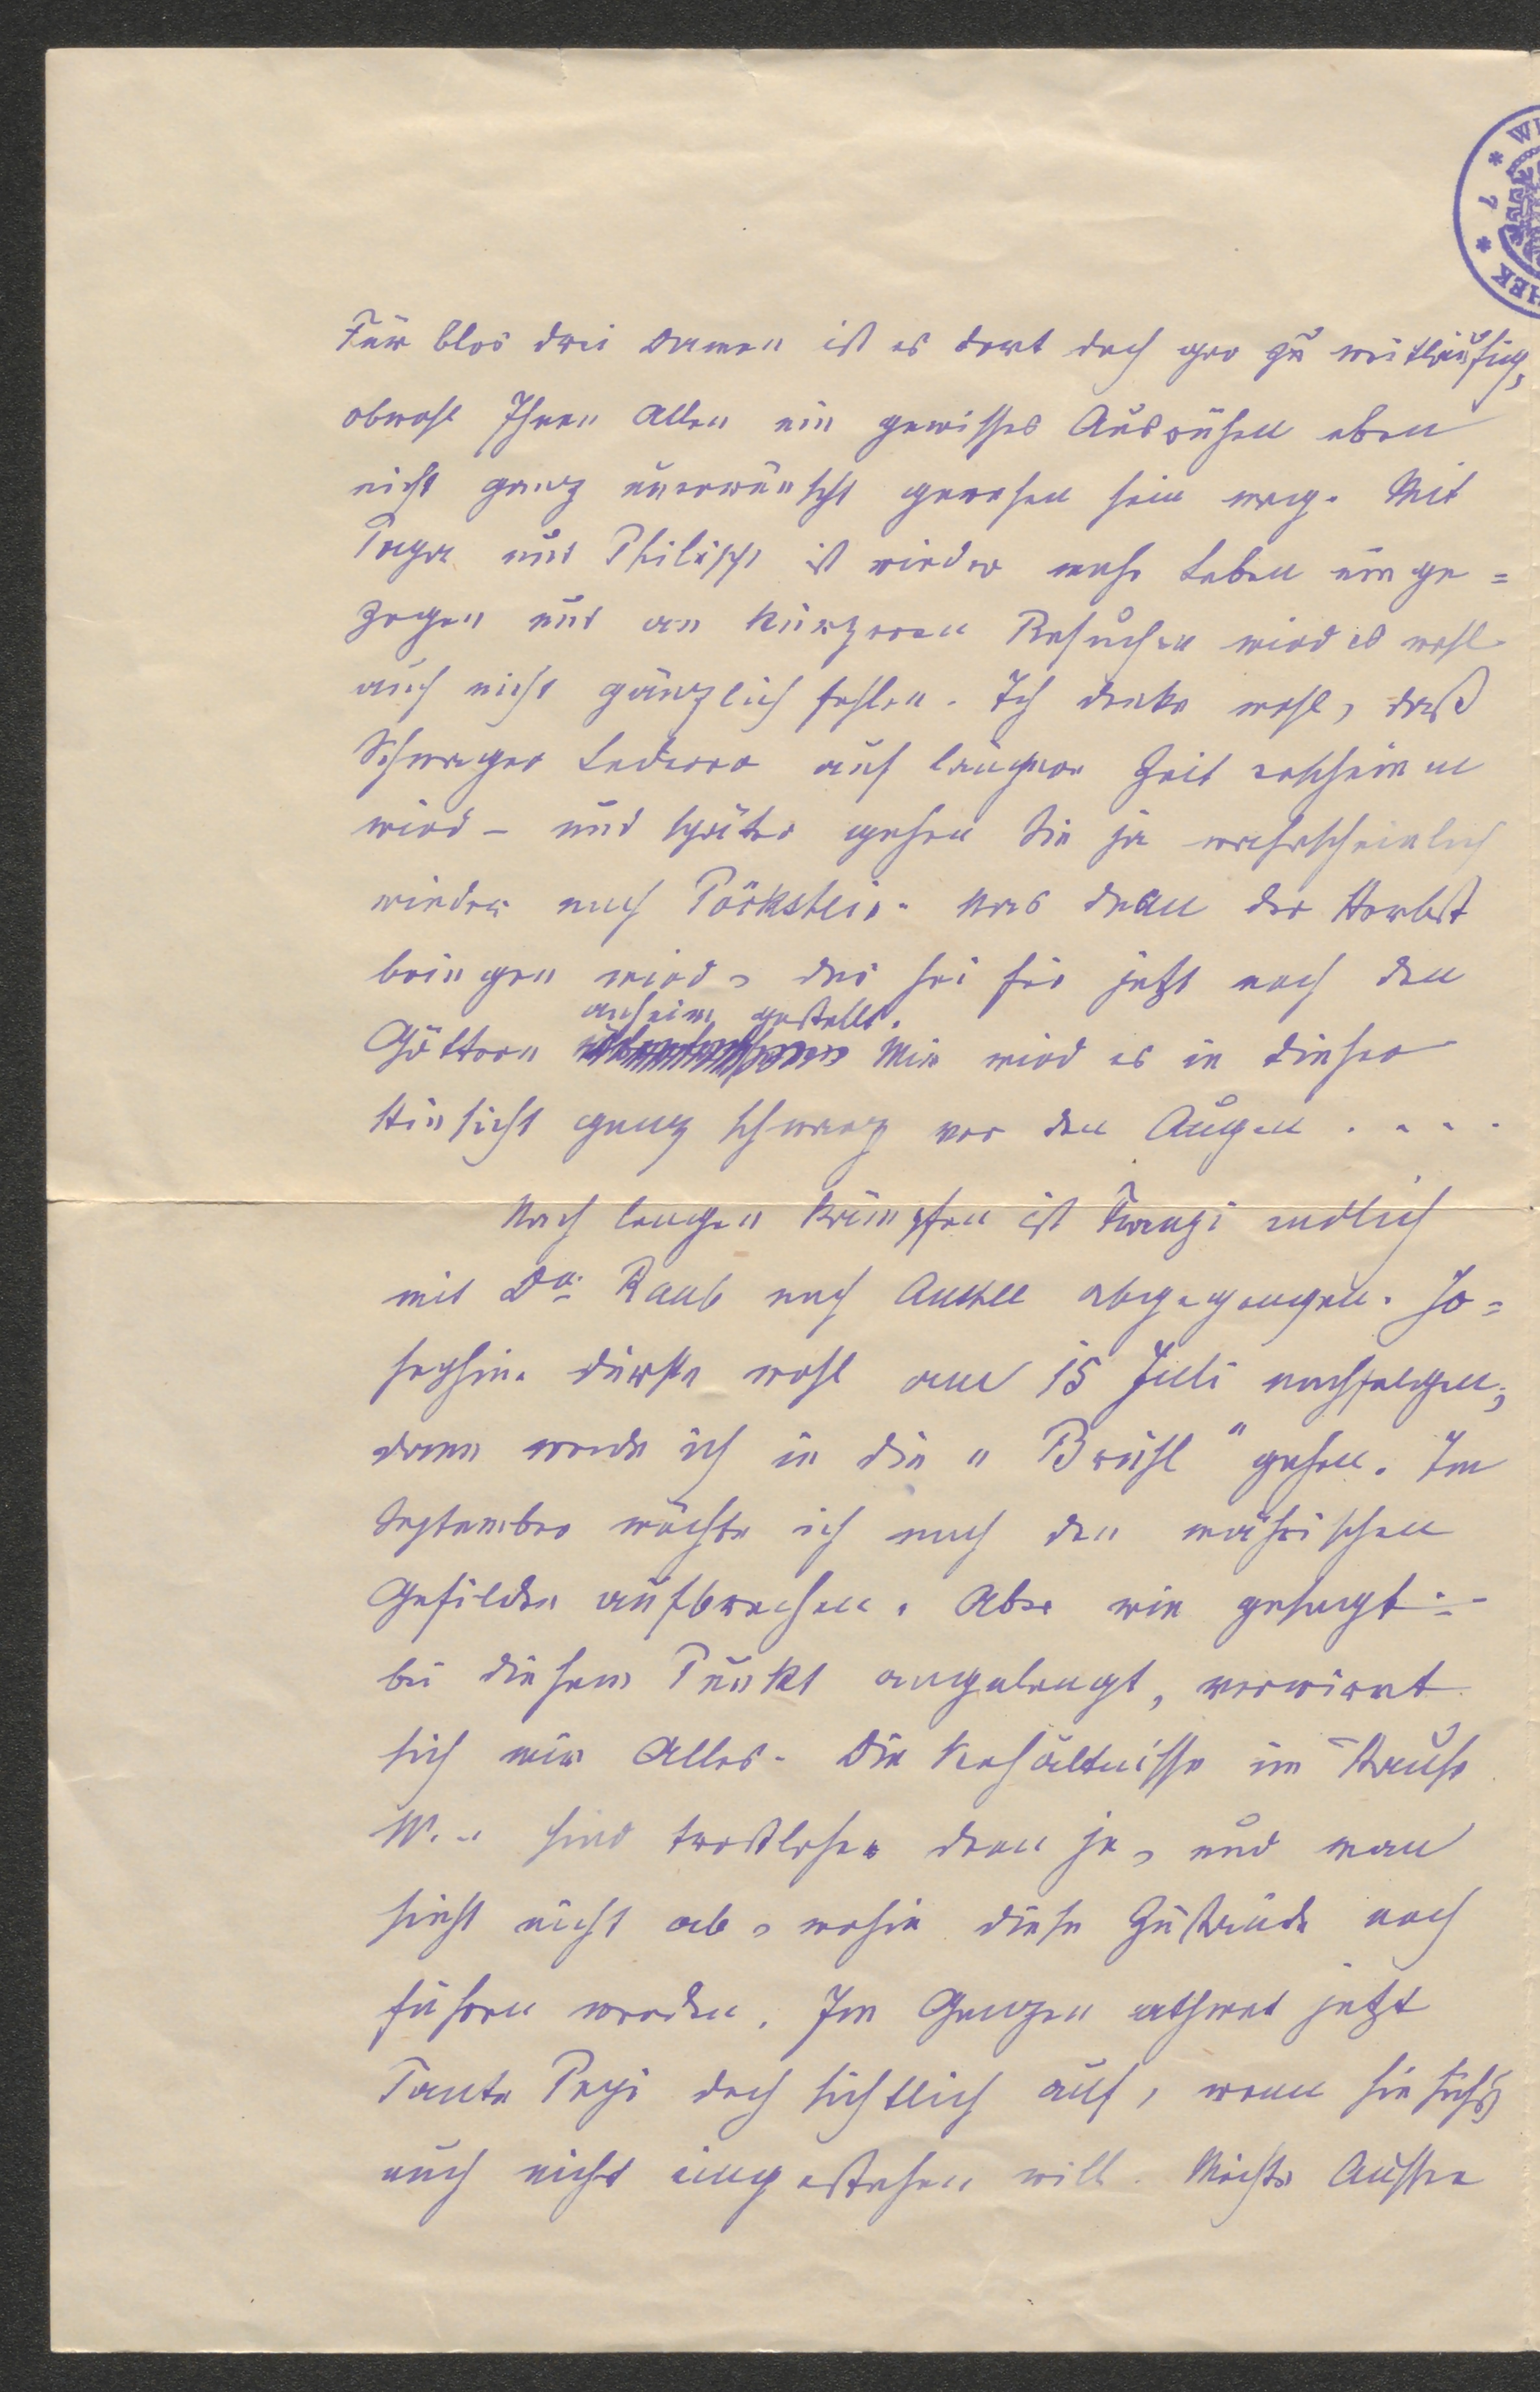 Für blos drei Damen ist es dort doch gar zu weitläufig,
obwohl Ihnen Allen ein gewisses Ausruhen eben
nicht ganz unerwünscht gewesen sein mag. Mit
Papa und Philipp ist wieder mehr Leben einge=
zogen und an kürzeren Besuchen wird es wohl
auch nicht gänzlich fehlen. Ich denke wohl, daß
Schwager Lederer auf längere Zeit erscheinen
wird – und später gehen Sie ja wahrscheinlich
wieder nach Pörkstein. Was dann der Herbst
bringen wird, das sei für jetzt noch den
anheim gestellt.
Göttern Mir wird es in dieser
Hinsicht ganz schwarz vor den Augen . . . .
Nach langen Kämpfen ist Franzi endlich
mit Dr. Raab nach Aussee abgegangen. Jo=
sephine dürfte wohl am 15 Juli nachfolgen,
dann werde ich in die "Brühl" gehen. Im
September möchte ich nach den mährischen
Gefilden aufbrechen. Aber wie gesagt: –
bei diesem Punkt angelangt, verwirrt
sich mir Alles. Die Verhältnisse im Hause
W.. sind trostloser denn je, und man
sieht nicht ab, wohin diese Zustände noch
führen werden. Im Ganzen athmet jetzt
Tante Pepi doch sichtlich auf, wenn sie sichs
auch nicht eingestehen will. Möchte Aussee
WI
* 7 *
HEK